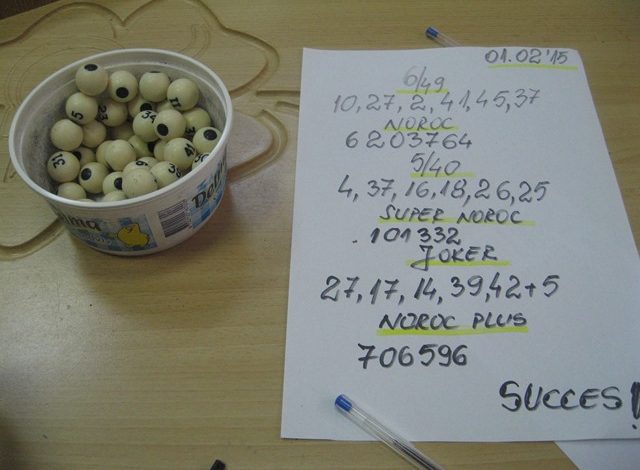 01.02'15
6/49
10, 27, 2, 41, 45, 37
NOROC
6203764
5/40
4, 37, 16, 18, 26, 25
SUPER NOROC
101332
JOKER
27, 17, 14, 39, 42 + 5
NOROC PLUS
706596
SUCCES!
31
5
23
11
34